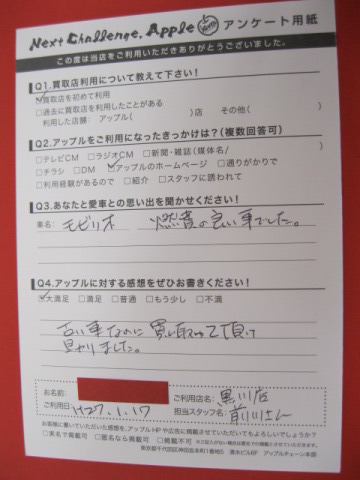 Next Challenge, Apple アンケート用紙
この度は当店をご利用いただきありがとうございました。
Q1.買取店利用について教えて下さい!
□買取店を初めて利用
□過去に買取店を利用したことがある
利用した店舗:アップル( )店 その他( )
Q2.アップルをご利用になったきっかけは?(複数回答可)
□テレビCM □ラジオCM □新聞・雑誌(媒体名/ )
□チラシ □DM □アップルのホームページ □通りがかりで
□利用経験があるので □紹介 □スタッフに誘われて
Q3.あなたと愛車との思い出を聞かせください!
車名: モビリオ 燃費の良い車でした。
Q4.アップルに対する感想をぜひお書きください!
□大満足 □満足 □普通 □もう少し □不満
古い車なのに買い取って頂け
助かりました。
お名前:
ご利用店名: 黒川店
ご利用日: H27.1.17
担当スタッフ名: 前川さん
お客様に書いていただいた感想を、アップルHPや広告に掲載させていただいてもよろしいでしょうか?
□実名で掲載可 □匿名なら掲載可 □掲載不可
東京都千代田区神田岩本町1番地5 清水ビル6F アップルチェーン本部